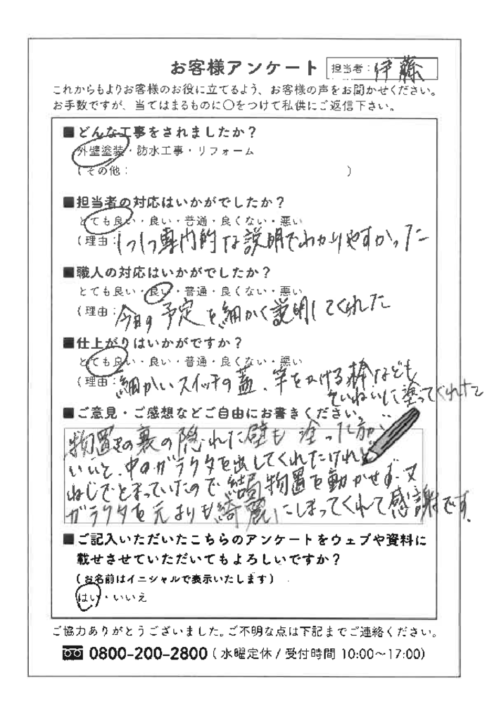 お客様アンケート 担当者: 伊藤
これからもよりお客様のお役に立てるよう、お客様の声をお聞かせください。
お手数ですが、当てはまるものに○をつけて私供にご返信下さい。
■どんな工事をされましたか?
外壁塗装・防水工事・リフォーム
(その他: )
■担当者の対応はいかがでしたか?
とても良い・良い・普通・良くない・悪い
(理由: 1つ1つ専門的な説明でわかりやすかった
■職人の対応はいかがでしたか?
とても良い・良い・普通・良くない・悪い
(理由: 今日の予定を細かく説明してくれた
■仕上がりはいかがですか?
とても良い・良い・普通・良くない・悪い
(理由: 細かいスイッチの蓋、竿をかける棒なども
ていねいに塗ってくれた
■ご意見・ご感想などご自由にお書きください。
物置きの裏の隠れた壁も塗った方が
いいと、中のガラクタを出してくれたけれど
ねじでとまっていたので結局物置を動かせず、又
ガラクタを元よりも綺麗にしまってくれて感謝です。
■ご記入いただいたこちらのアンケートをウェブや資料に
載せさせていただいてもよろしいですか?
(お名前はイニシャルで表示いたします)
はい・いいえ
ご協力ありがとうございました。ご不明な点は下記までご連絡ください。
0800-200-2800 (水曜定休/受付時間 10:00〜17:00)